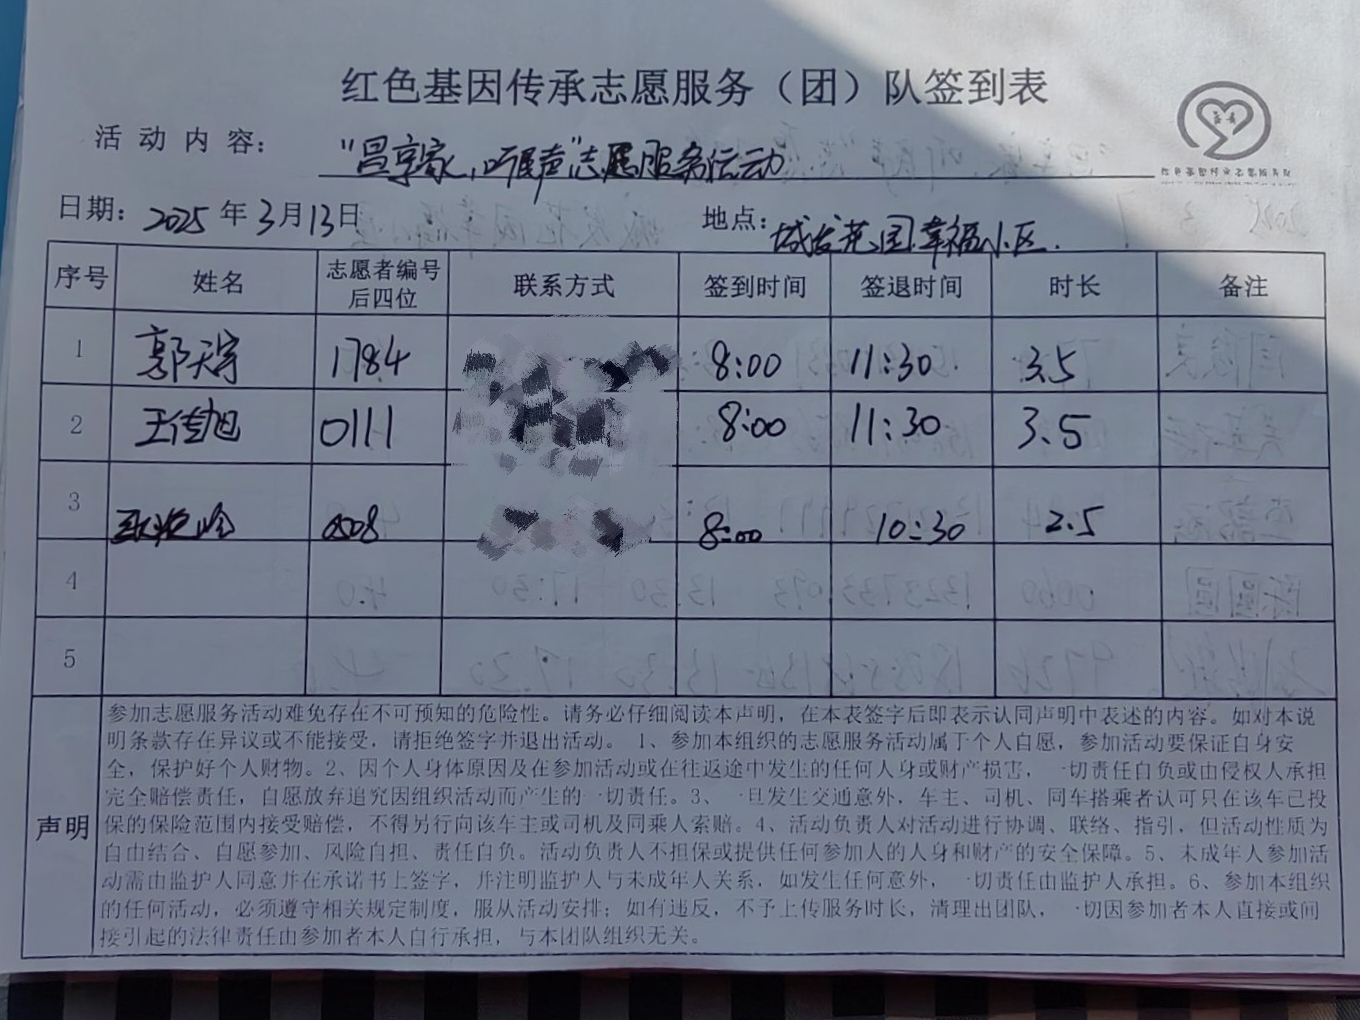 红色基因传承志愿服务（团）队签到表
活动内容： “昌享家，听民声”志愿服务活动
日期：2025年3月13日 地点：城发花园幸福小区.
序号 姓名 志愿者编号后四位 联系方式 签到时间 签退时间 时长 备注
1 郭天宇 1784 8:00 11:30 3.5
2 王佳旭 0111 8:00 11:30 3.5
3 0508 8:00 10:30 2.5
4
5
声明
参加志愿服务活动难免存在不可预知的危险性。请务必仔细阅读本声明，在本表签字后即表示认同声明中表述的内容。如对本说
明条款存在异议或不能接受，请拒绝签字并退出活动。1、参加本组织的志愿服务活动属于个人自愿，参加活动要保证自身安
全，保护好个人财物。2、因个人身体原因及在参加活动或在往返途中发生的任何人身或财产损害，一切责任自负或由侵权人承担
完全赔偿责任，自愿放弃追究因组织活动而产生的一切责任。3、一旦发生交通意外，车主、司机、同车搭乘者认可只在该车已投
保的保险范围内接受赔偿，不得另行向该车主或司机及同乘人索赔。4、活动负责人对活动进行协调、联络、指引，但活动性质为
自由结合、自愿参加、风险自担、责任自负。活动负责人不担保或提供任何参加人的人身和财产的安全保障。5、未成年人参加活
动需由监护人同意并在承诺书上签字，并注明监护人与未成年人关系，如发生任何意外，一切责任由监护人承担。6、参加本组织
的任何活动，必须遵守相关规定制度，服从活动安排；如有违反，不予上传服务时长，清理出团队，一切因参加者本人直接或间
接引起的法律责任由参加者本人自行承担，与本团队组织无关。